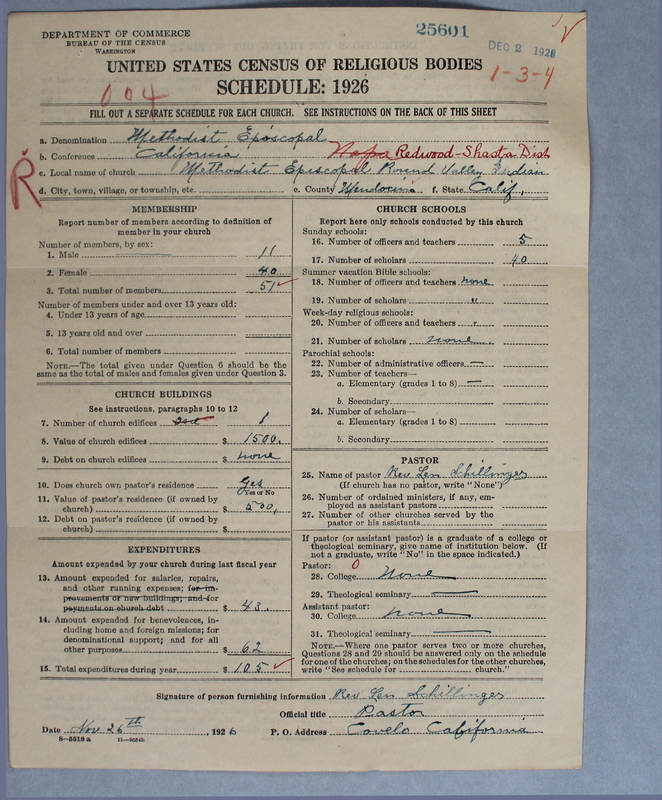 DEPARTMENT OF COMMERCE
BUREAU OF THE CENSUS
WASHINGTON
25601
DEC 2 1926
1-3-4
UNITED STATES CENSUS OF RELIGIOUS BODIES
SCHEDULE: 1926
004
FILL OUT A SEPARATE SCHEDULE FOR EACH CHURCH. SEE INSTRUCTIONS ON THE BACK OF THIS SHEET
a. Denomination Methodist Episcopal
b. Conference California Napa Redwood-Shasta Dist
c. Local name of church Methodist Episcopal Round Valley Indian
R
d. City, town, village, or township, etc. e. County Mendocino f. State Calif.
MEMBERSHIP
Report number of members according to definition of
member in your church
Number of members, by sex:
1. Male 11
2. Female 40
3. Total number of members 51
Number of members under and over 13 years old:
4. Under 13 years of age
5. 13 years old and over
6. Total number of members
NOTE.—The total given under Question 6 should be the
same as the total of males and females given under Question 3.
CHURCH BUILDINGS
See instructions, paragraphs 10 to 12
7. Number of church edifices 1
8. Value of church edifices $ 1500.
9. Debt on church edifices $ none
10. Does church own pastor's residence Yes
Yes or No
11. Value of pastor's residence (if owned by
church) $ 500.
12. Debt on pastor's residence (if owned by
church) $
EXPENDITURES
Amount expended by your church during last fiscal year
13. Amount expended for salaries, repairs,
and other running expenses; for im-
provements or new buildings; and for
payments on church debt $ 43.
14. Amount expended for benevolences, in-
cluding home and foreign missions; for
denominational support; and for all
other purposes $ 62
15. Total expenditures during year $ 105
CHURCH SCHOOLS
Report here only schools conducted by this church
Sunday schools:
16. Number of officers and teachers 5
17. Number of scholars 40
Summer vacation Bible schools:
18. Number of officers and teachers none
19. Number of scholars "
Week-day religious schools:
20. Number of officers and teachers "
21. Number of scholars none
Parochial schools:
22. Number of administrative officers —
23. Number of teachers—
a. Elementary (grades 1 to 8) —
b. Secondary
24. Number of scholars—
a. Elementary (grades 1 to 8)
b. Secondary
PASTOR
25. Name of pastor Rev Len Schillinger
(If church has no pastor, write "None")
26. Number of ordained ministers, if any, em-
ployed as assistant pastors
27. Number of other churches served by the
pastor or his assistants
If pastor (or assistant pastor) is a graduate of a college or
theological seminary, give name of institution below. (If
not a graduate, write "No" in the space indicated.)
Pastor: 0
28. College None
29. Theological seminary —
Assistant pastor:
30. College none
31. Theological seminary —
NOTE.—Where one pastor serves two or more churches,
Questions 28 and 29 should be answered only on the schedule
for one of the churches; on the schedules for the other churches,
write "See schedule for church."
Signature of person furnishing information Rev Len Schillinger
Official title Pastor
Date Nov 26th, 1926 P. O. Address Covelo California
8—5518 a